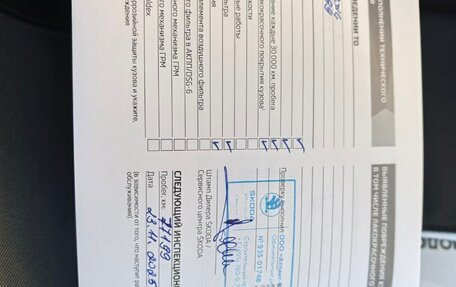 ПОЛНЕНИИ ТЕХНИЧЕСКОГО
ВЕДЕНИИ ТО
ание каждые 30 000 км. пробега
кокрасочного покрытия кузова
ности
ные работы
льтра
элемента воздушного фильтра
и фильтра в АКПП/DSG-6
ного механизма ГРМ
го механизма ГРМ
ldex
оррозийной защиты кузова и укажите,
ждения
ВЫЯВЛЕННЫЕ ПОВРЕЖДЕНИЯ К
В ТОМ ЧИСЛЕ ЛАКОКРАСОЧНОГО
Проверку выполнил:
ООО
ŠKODA
№ 935-01748
Штамп Дилера ŠKODA /
Сервисного центра ŠKODA
СЛЕДУЮЩИЙ ИНСПЕКЦИОН
Пробег, км: 77199
Дата 23.11.2025
(в зависимости от того, что наступит ра
обслуживания)